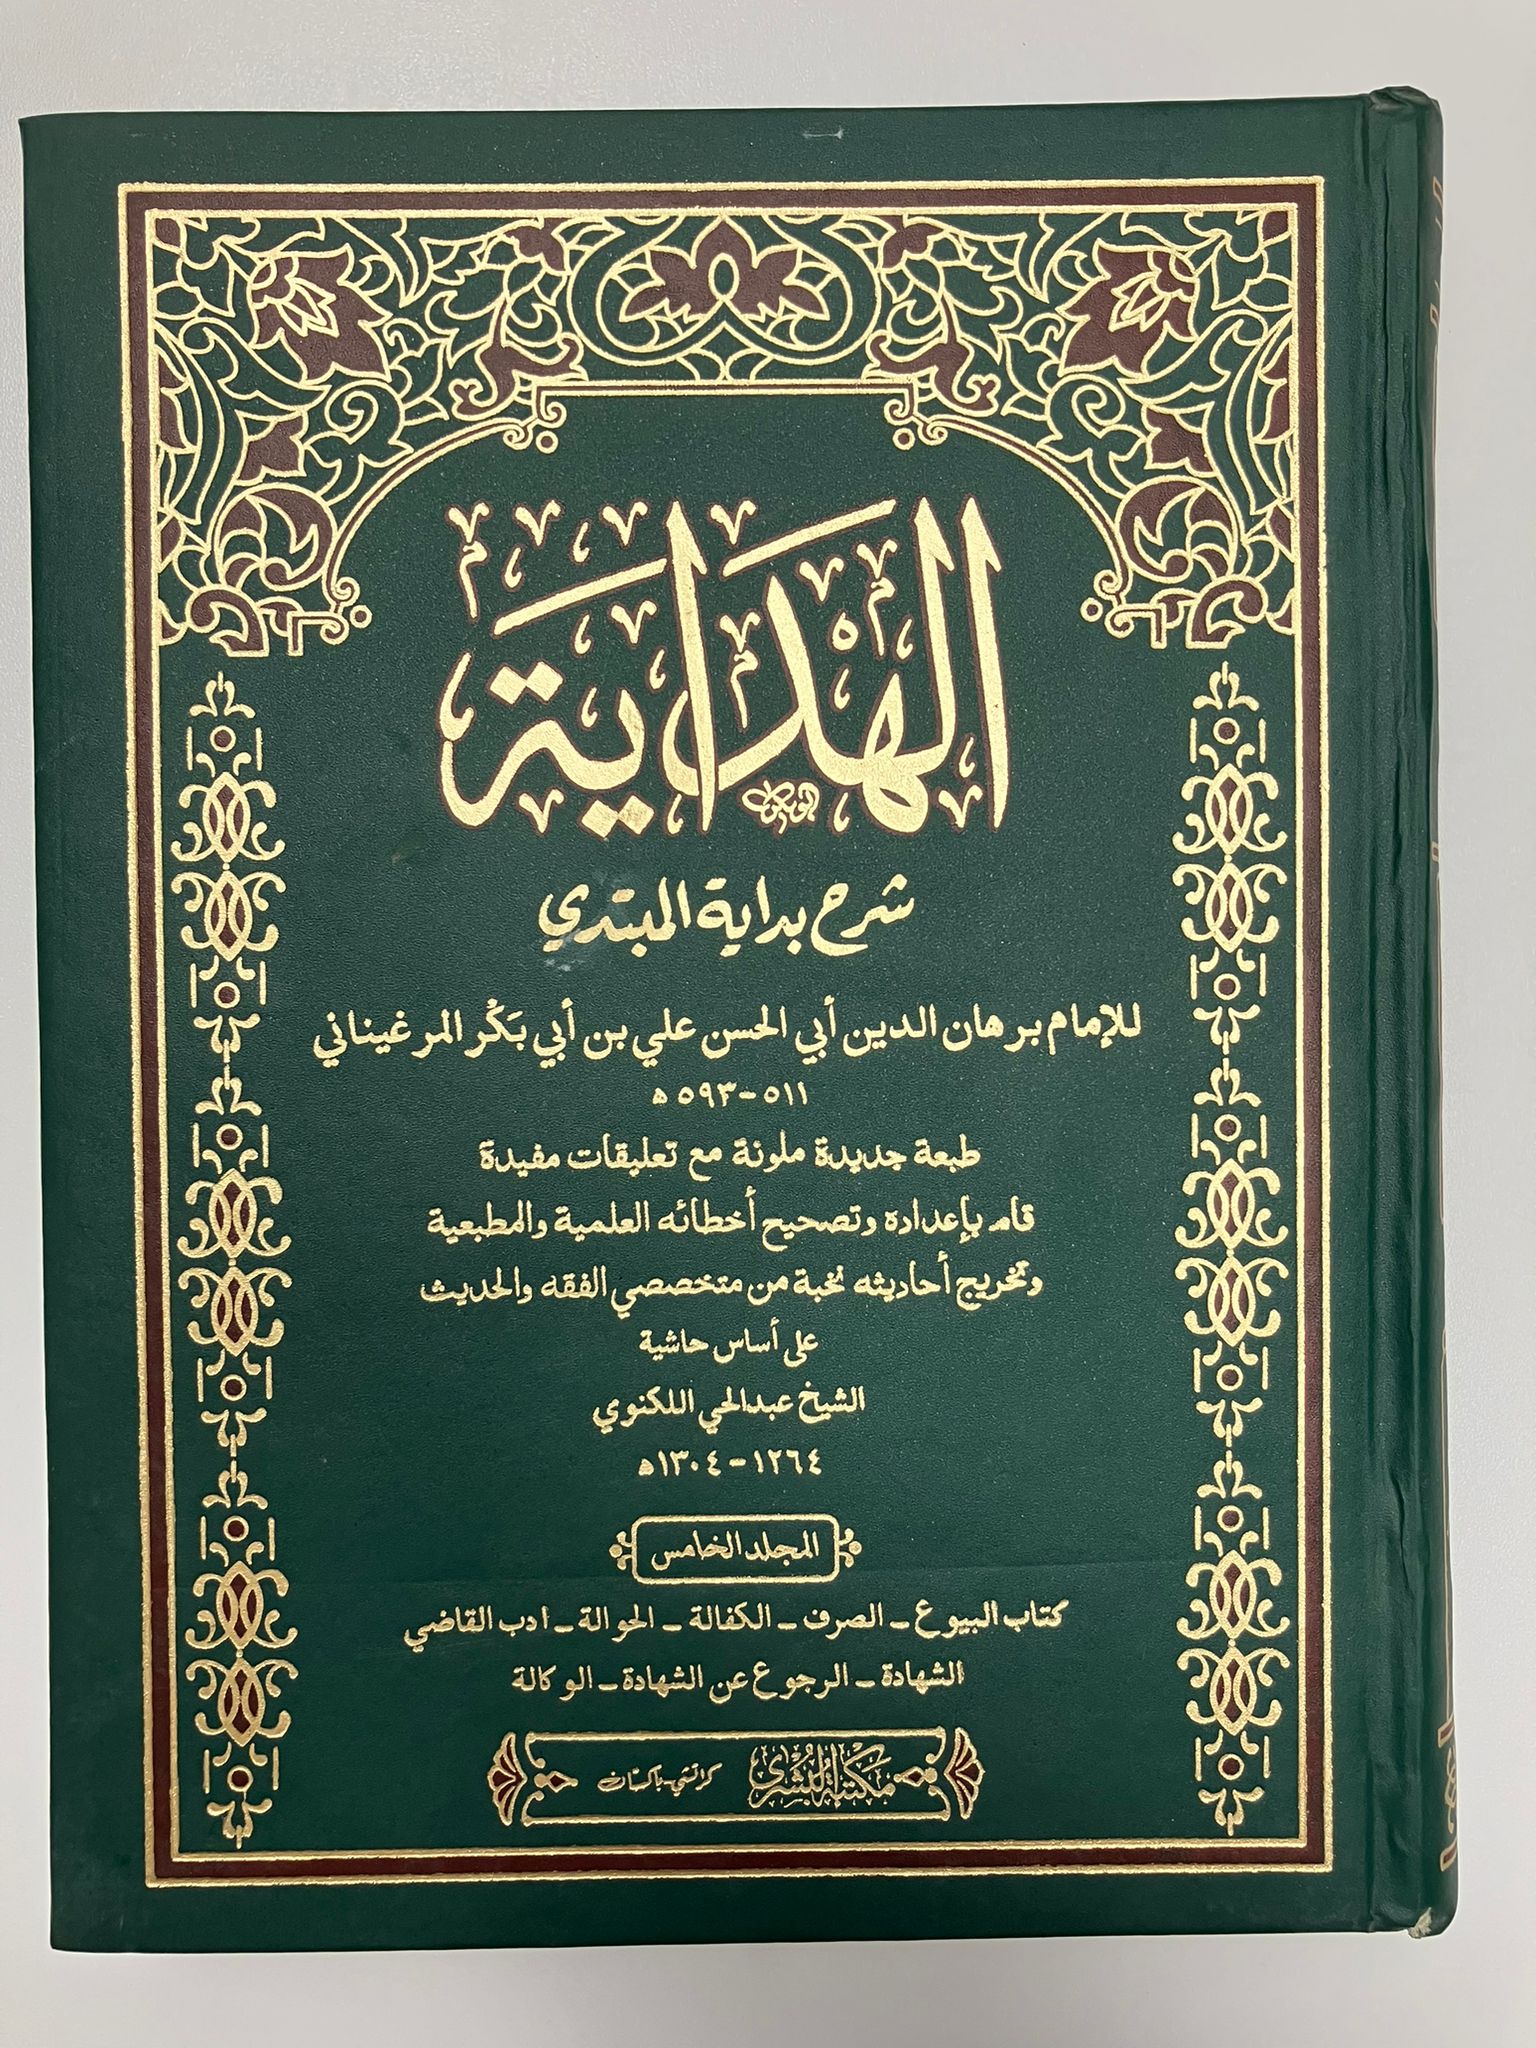 الهداية
شرح بداية المبتدي
للإمام برهان الدين أبي الحسن علي بن أبي بَكْر المرغيناني
٥١١-٥٩٣ه
طبعة جديدة ملونة مع تعليقات مفيدة
قام بإعداده وتصحيح أخطائه العلمية والمطبعية
وتخريج أحاديثه نخبة من متخصصي الفقه والحديث
على أساس حاشية
الشيخ عبدالحي اللكنوي
١٢٦٤-١٣٠٤ه
المجلد الخامس
كتاب البيوع - الصرف - الكفالة - الحوالة - ادب القاضي
الشهادة - الرجوع عن الشهادة - الوكالة
مكتبة البشرى كراتشي-باكستان